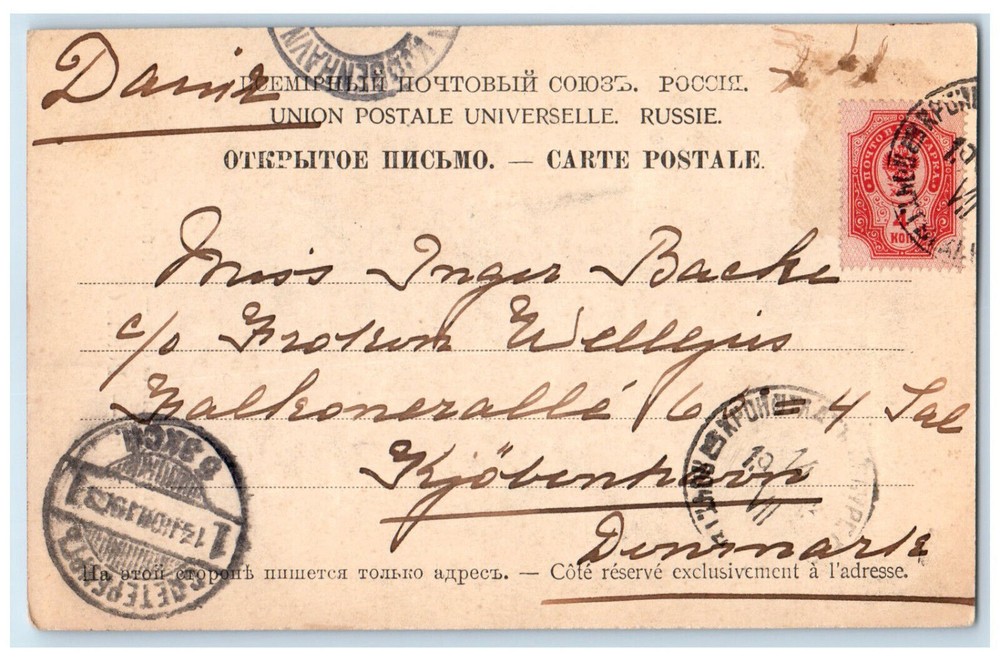 Dania
ВСЕМІРНЫЙ ПОЧТОВЫЙ СОЮЗЪ. РОССІЯ.
UNION POSTALE UNIVERSELLE. RUSSIE.
ОТКРЫТОЕ ПИСЬМО. — CARTE POSTALE.
ПОЧТОВАЯ МАРКА
4
КОП
Miss Inger Backe
c/o Frokon Wellejus
Falkonerallé 6 = 4 Sal
Kjöbenhavn
Denmark
На этой сторонѣ пишется только адресъ. — Côté réservé exclusivement à l'adresse.